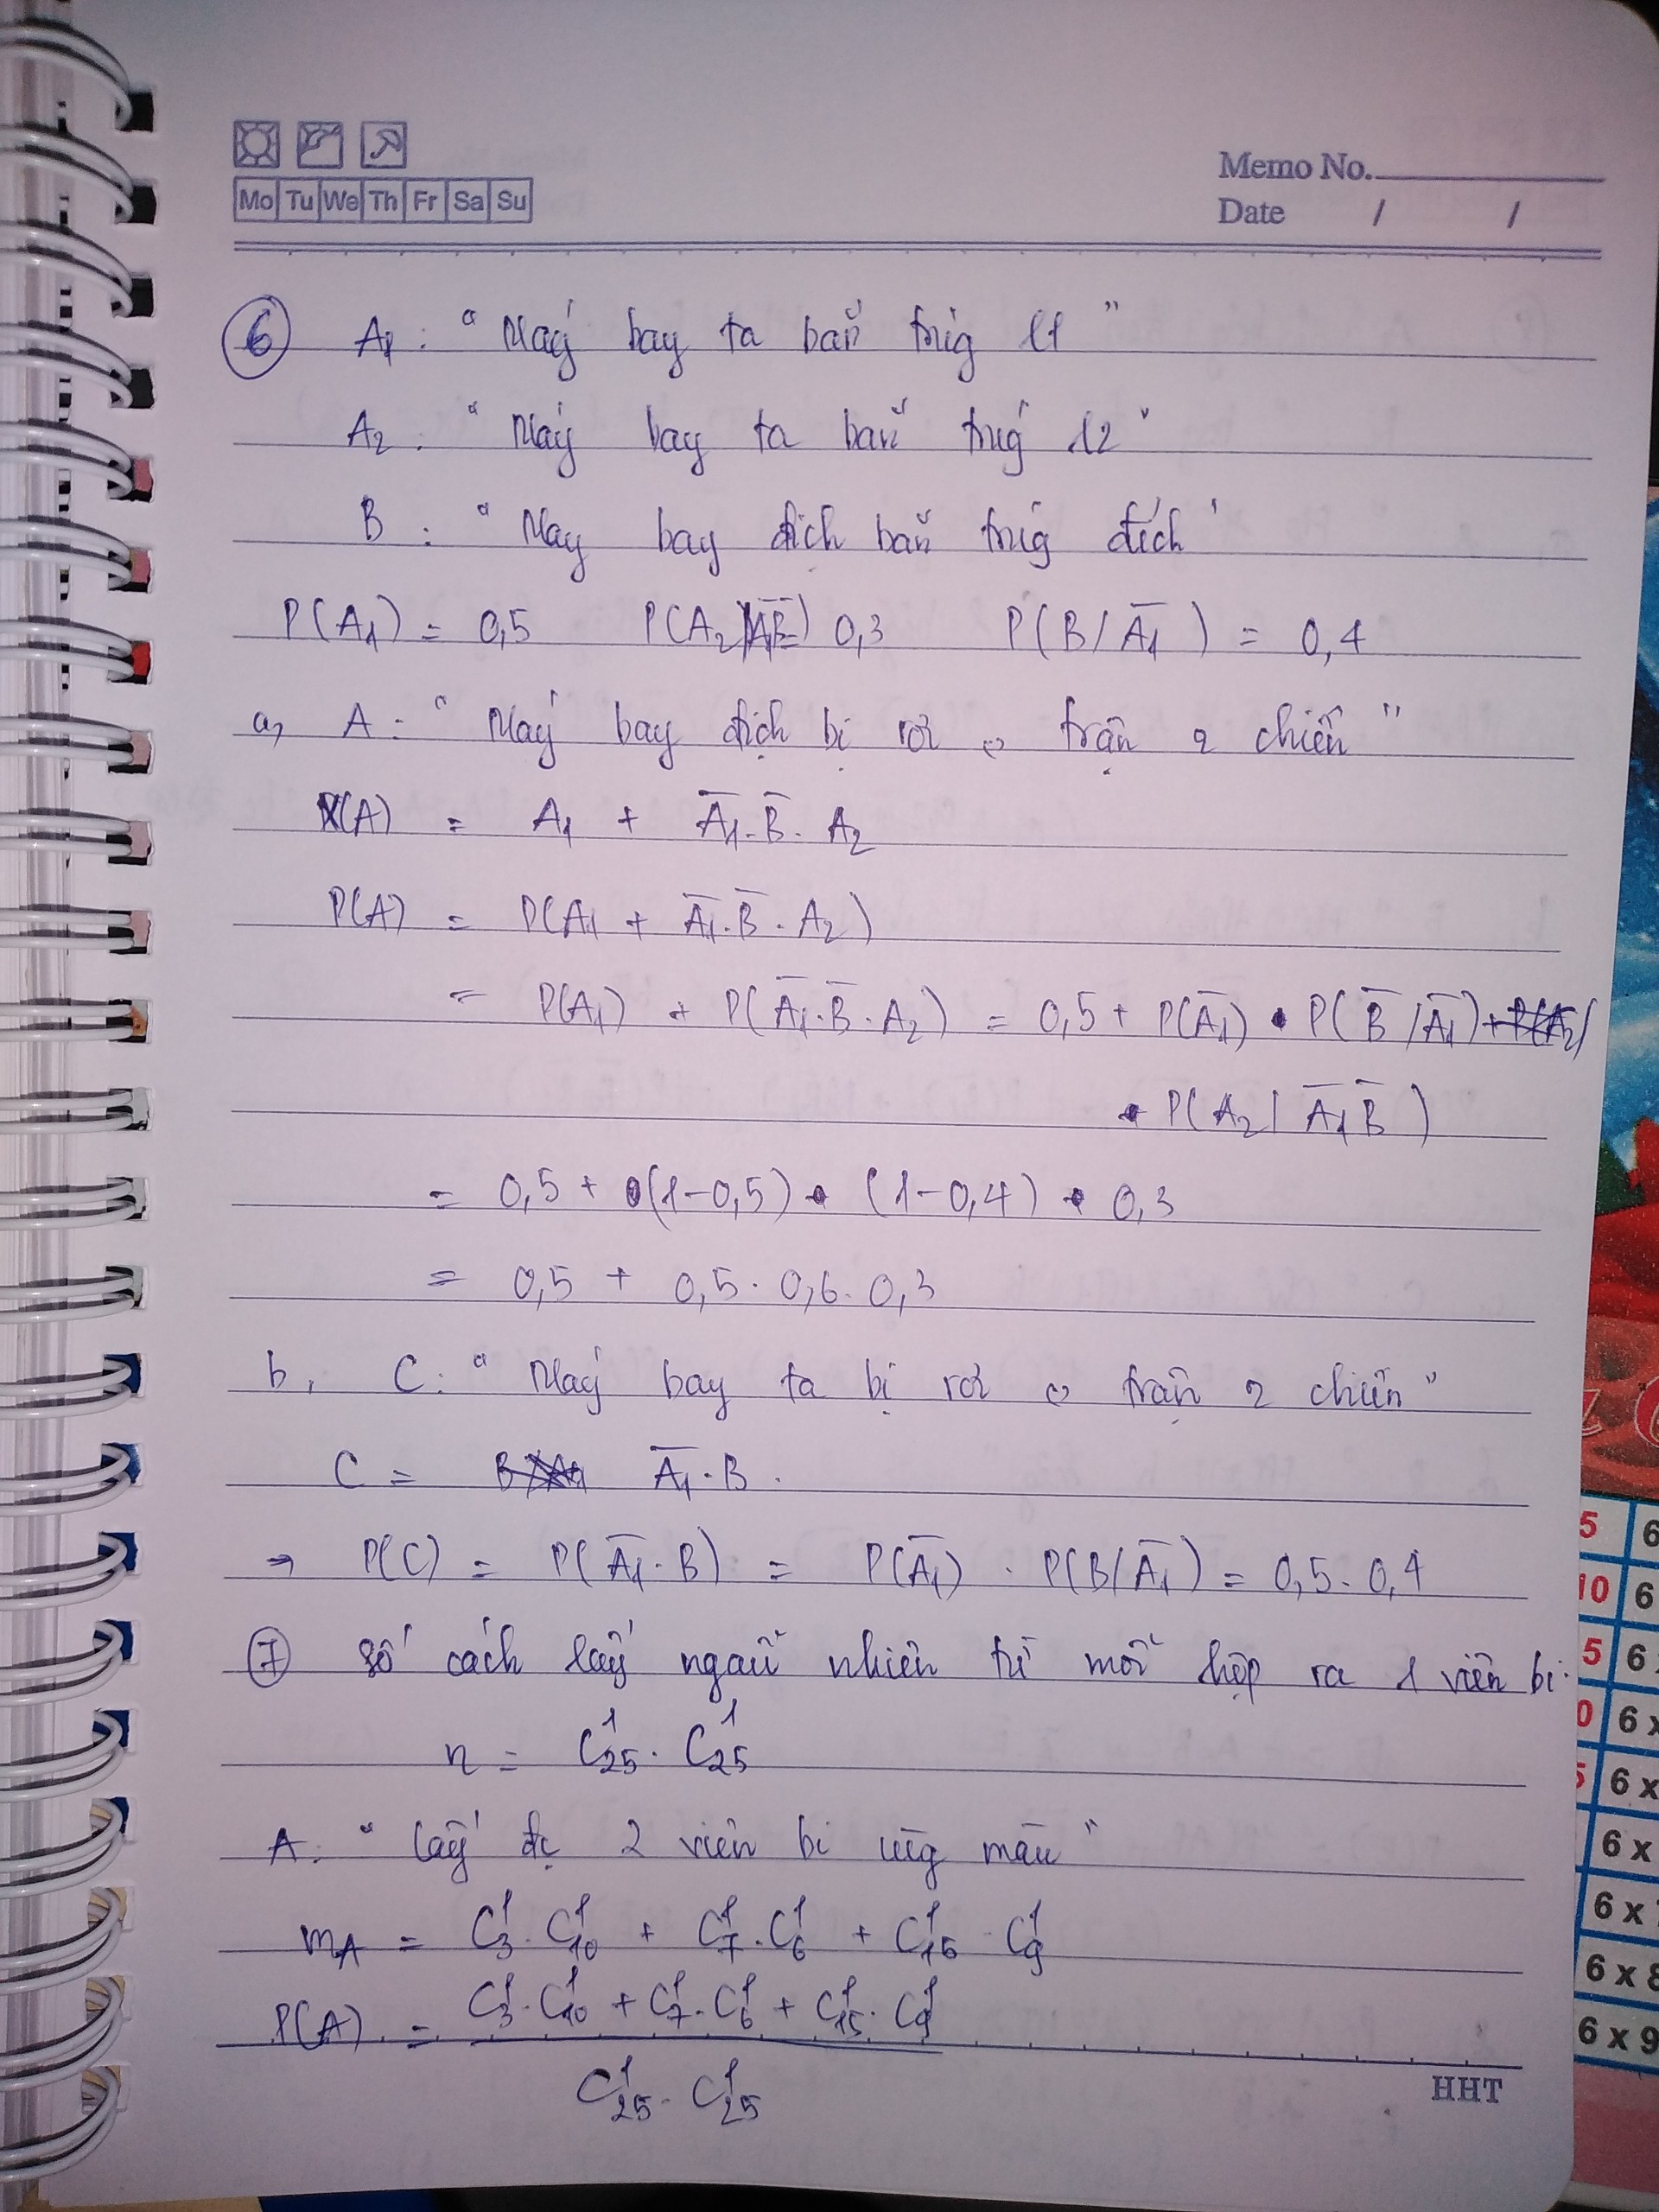 Mo Tu We Th Fr Sa Su
Memo No.
Date / /
⑥ A₁ : "Máy bay ta bắn trúng l1"
A₂ : "Máy bay ta bắn trúng l2"
B : "Máy bay địch bắn trúng đích"
P(A₁) = 0,5 P(A₂|A̅₁B̅) = 0,3 P(B/A̅₁) = 0,4
a, A : "Máy bay địch bị rơi trận chiến"
(A) = A₁ + A̅₁.B̅.A₂
P(A) = P(A₁ + A̅₁.B̅.A₂)
= P(A₁) + P(A̅₁.B̅.A₂) = 0,5 + P(A̅₁) • P(B̅/A̅₁)
• P(A₂| A̅₁B̅)
= 0,5 + (1-0,5) • (1-0,4) • 0,3
= 0,5 + 0,5. 0,6. 0,3
b, C: "Máy bay ta bị rơi trận chiến"
C = A̅₁.B.
→ P(C) = P(A̅₁.B) = P(A̅₁) . P(B/A̅₁) = 0,5. 0,4
⑦ Số cách lấy ngẫu nhiên từ mỗi hộp ra 1 viên bi:
n = C¹₂₅. C¹₂₅
A: "lấy đc 2 viên bi cùng màu"
m_A = C¹₃.C¹₁₀ + C¹₇.C¹₆ + C¹₁₅.C¹₉
P(A) = C¹₃.C¹₁₀ + C¹₇.C¹₆ + C¹₁₅.C¹₉
C¹₂₅. C¹₂₅
HHT
5 6
10 6
5 6
0 6 x
5 6 x
6 x
6 x
6 x 8
6 x 9